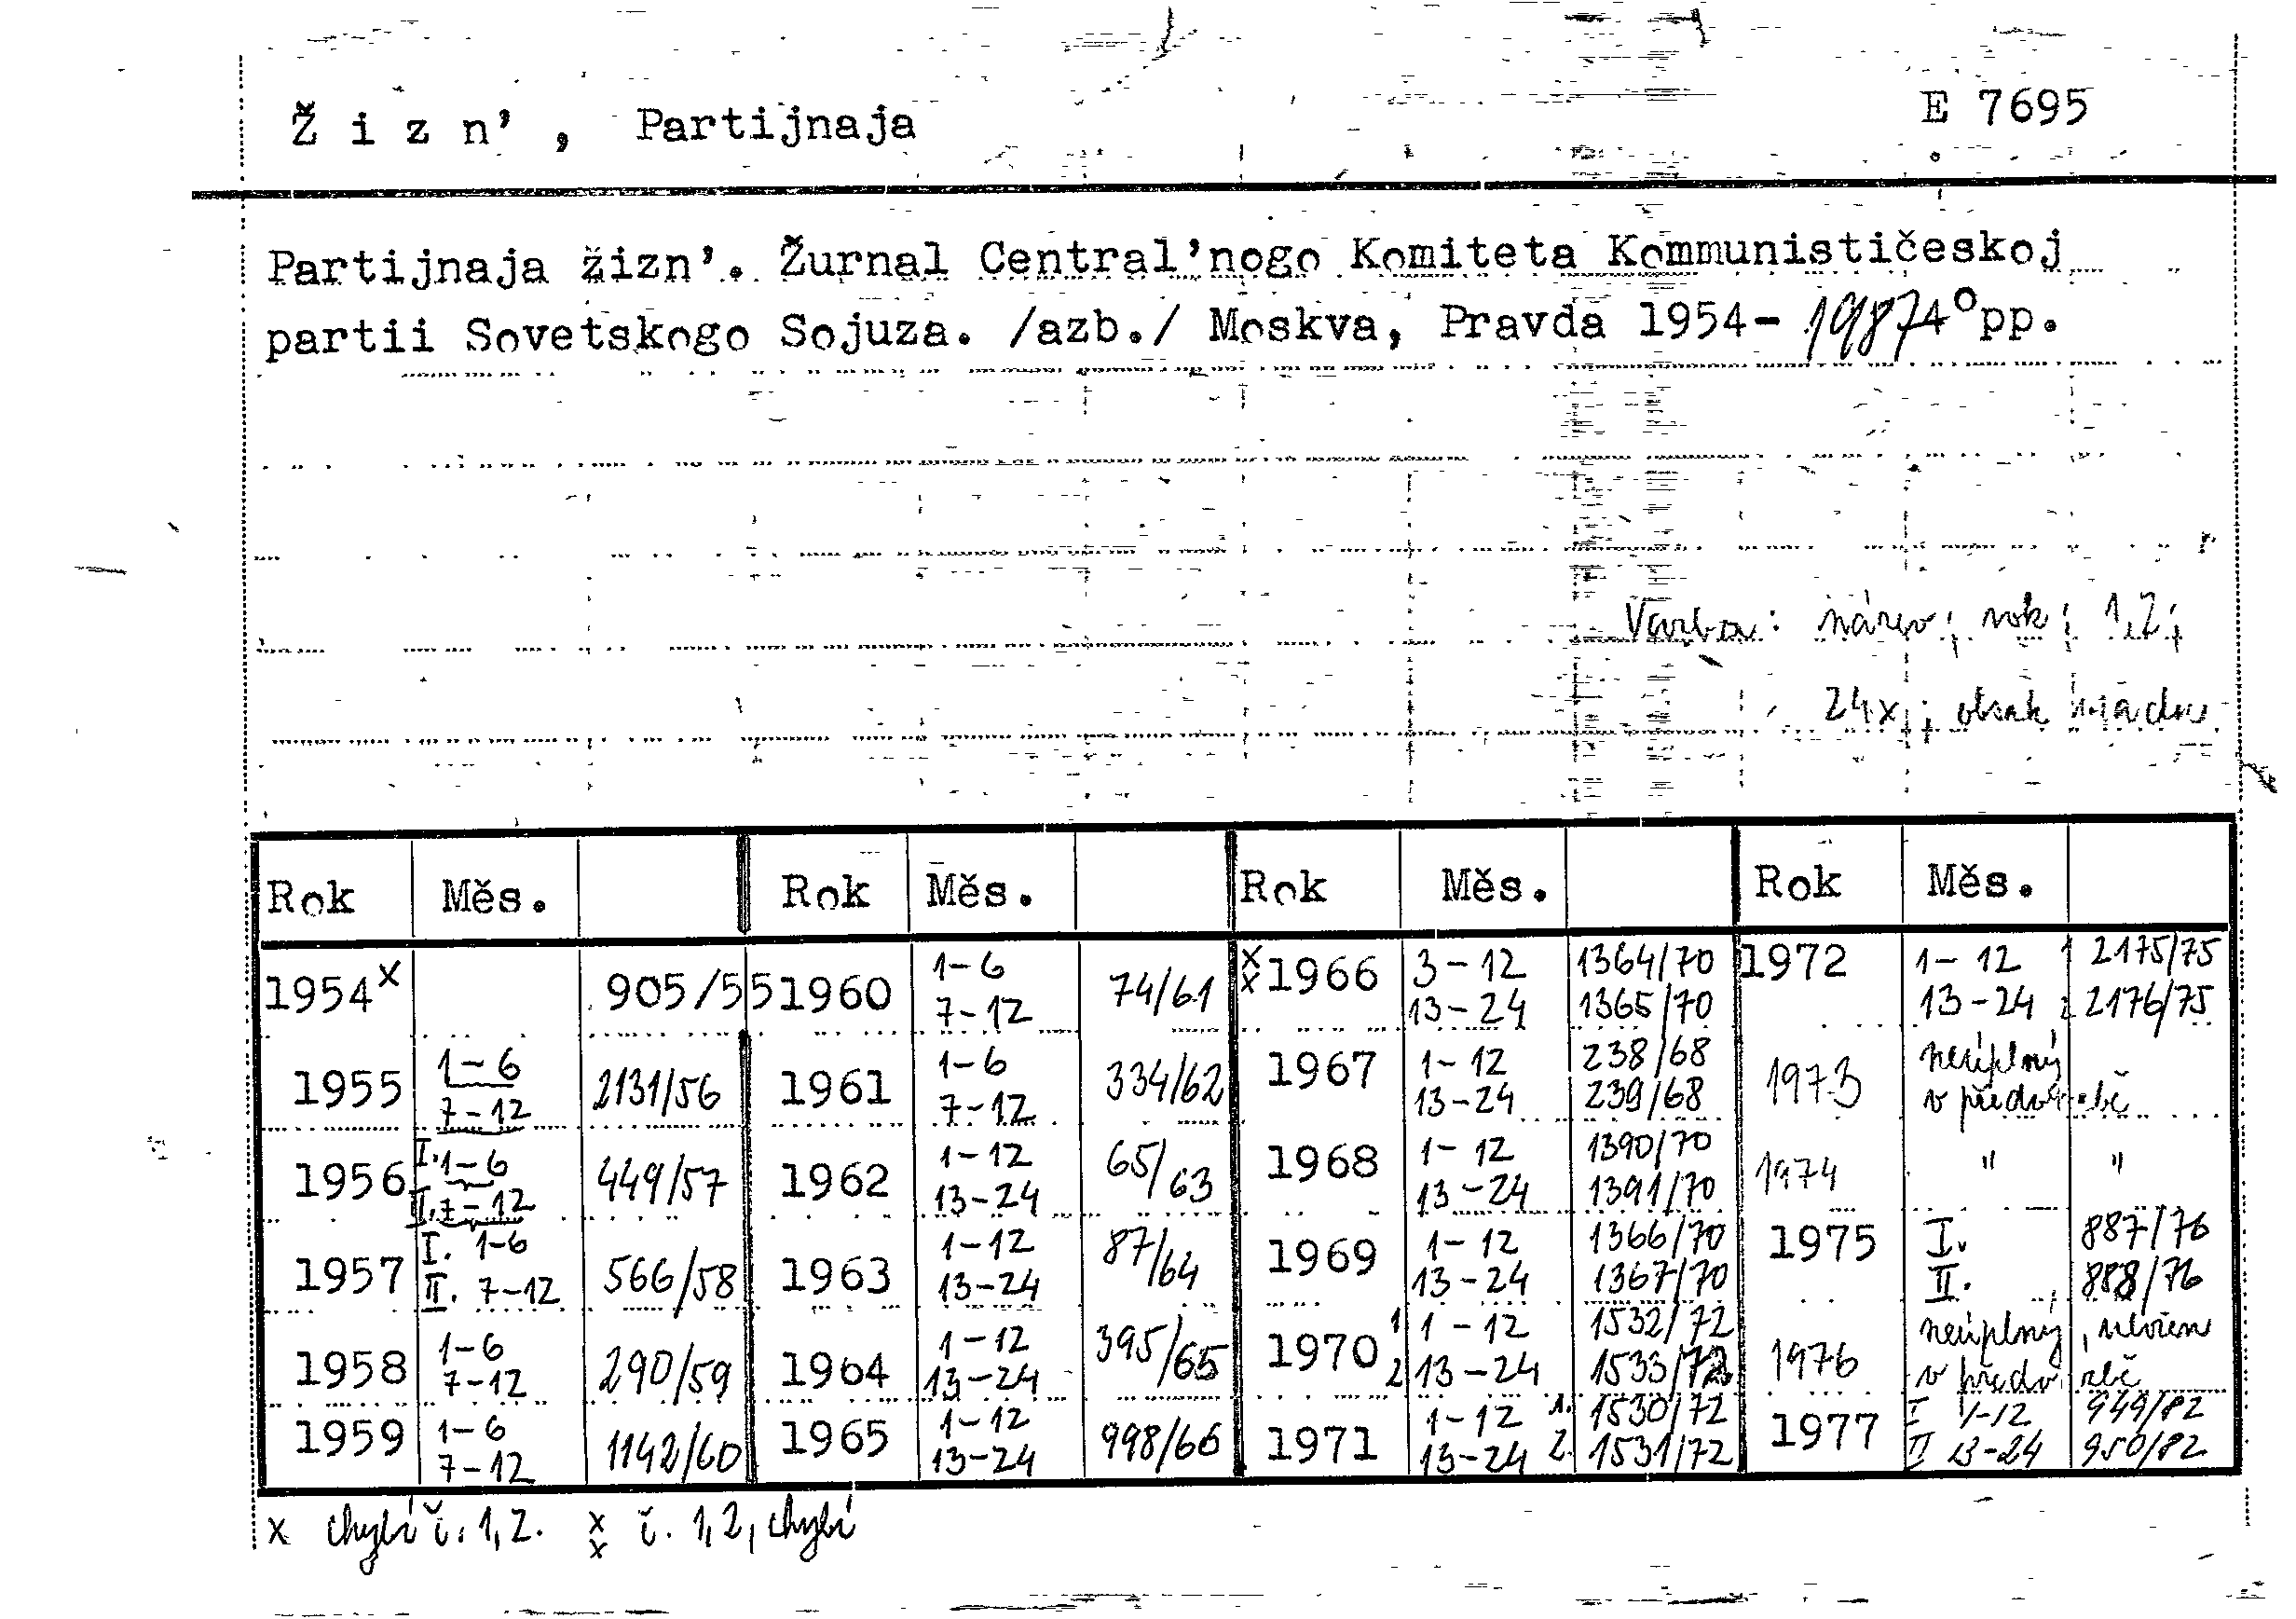 Ž i z n' , Partijnaja E 7695
Partijnaja žizn'. Žurnal Central'nogo Komiteta Kommunističeskoj
partii Sovetskogo Sojuza. /azb./ Moskva, Pravda 1954- 1987 4° pp.
Vazba: název; rok; 1,2;
24x; obsah
Rok Měs. Rok Měs. Rok Měs. Rok Měs.
1954 x 905/55 1960 1-6 7-12 74/61 x x 1966 3-12 1364/70 13-24 1365/70 1972 1-12 1 2175/75 13-24 2 2176/75
1955 1-6 7-12 2131/56 1961 1-6 7-12 334/62 1967 1-12 238/68 13-24 239/68 1973 neúplný v předvazbě
1956 I. 1-6 II. 7-12 449/57 1962 1-12 13-24 65/63 1968 1-12 1390/70 13-24 1391/70 1974 " "
1957 I. 1-6 II. 7-12 566/58 1963 1-12 13-24 87/64 1969 1-12 1366/70 13-24 1367/70 1975 I. 887/76 II. 888/76
1958 1-6 7-12 290/59 1964 1-12 13-24 395/65 1970 1 1-12 1532/72 2 13-24 1533/72 1976 neúplný, uložen v předv.
1959 1-6 7-12 1142/60 1965 1-12 13-24 998/66 1971 1-12 1. 1530/72 13-24 2. 1531/72 1977 I 1-12 949/82 II 13-24 950/82
x chybí č. 1, 2. x x č. 1, 2, chybí